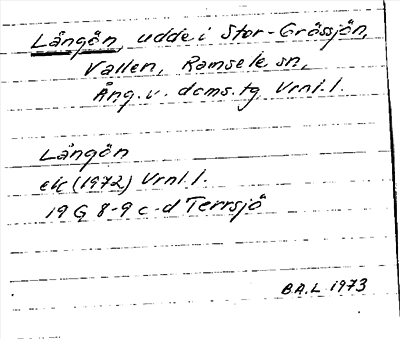 Långön, udde i Stor-Gråssjön,
Vallen, Ramsele sn,
Ång. v. dcms. tg Vrnl. l.
Långön
ek (1972) Vrnl. l.
19 G 8-9 c-d Terrsjö
B A. L 1973